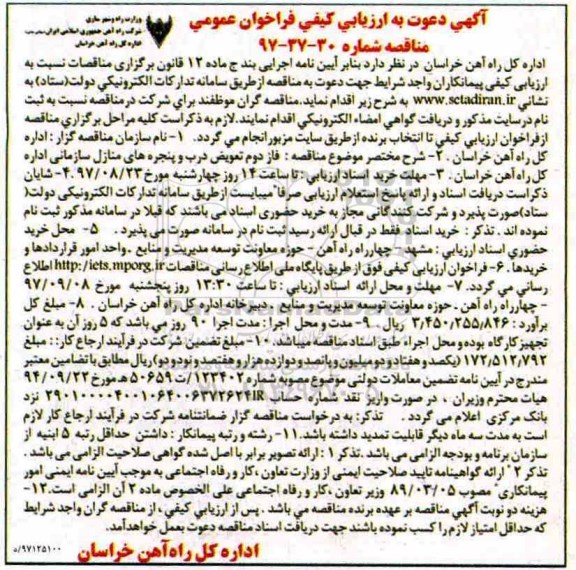 وزارت راه و شهرسازی
شرکت راه آهن جمهوری اسلامی ایران
اداره کل راه آهن خراسان
آگهي دعوت به ارزيابي كيفي فراخوان عمومي
مناقصه شماره ۳۰-۳۷-۹۷
اداره کل راه آهن خراسان در نظر دارد بنابر آیین نامه اجرایی بند ج ماده ۱۲ قانون برگزاری مناقصات نسبت به
ارزیابی کیفی پیمانکاران واجد شرایط جهت دعوت به مناقصه ازطریق سامانه تدارکات الکترونیکی دولت(ستاد) به
نشانی www.setadiran.ir به شرح زیر اقدام نماید.مناقصه گران موظفند برای شرکت در مناقصه نسبت به ثبت
نام درسایت مذکور و دریافت گواهی امضاء الکترونیکی اقدام نمایند.لازم به ذکراست کلیه مراحل برگزاری مناقصه
ازفراخوان ارزیابی کیفی تا انتخاب برنده ازطریق سایت مزبور انجام می گردد. ۱- نام سازمان مناقصه گزار : اداره
کل راه آهن خراسان . ۲- شرح مختصر موضوع مناقصه : فاز دوم تعویض درب و پنجره های منازل سازمانی اداره
کل راه آهن خراسان . ۳- مهلت خرید اسناد ارزیابی : تا ساعت ۱۴ روز چهارشنبه مورخ ۹۷/۰۸/۲۳ .۴- شایان
ذکراست دریافت اسناد و ارائه پاسخ استعلام ارزیابی صرفا" میبایست ازطریق سامانه تدارکات الکترونیکی دولت(
ستاد)صورت پذیرد و شرکت کنندگانی مجاز به خرید حضوری اسناد می باشند که قبلا در سامانه مذکور ثبت نام
نموده اند . تذکر : خرید اسناد فقط در قبال ارائه رسید ثبت نام در سامانه صورت می پذیرد . ۵- محل خرید
حضوری اسناد ارزیابی : مشهد - چهارراه راه آهن - حوزه معاونت توسعه مدیریت و منابع . واحد امور قراردادها و
خریدها . ۶- فراخوان ارزیابی کیفی فوق از طریق پایگاه ملی اطلاع رسانی مناقصات http://iets.mporg.ir اطلاع
رسانی می گردد. ۷- مهلت و محل ارائه اسناد ارزیابی : تا ساعت ۱۳:۳۰ روز پنجشنبه مورخ ۹۷/۰۹/۰۸
- چهارراه راه آهن . حوزه معاونت توسعه مدیریت و منابع . دبیرخانه اداره کل راه آهن خراسان . ۸- مبلغ کل
برآورد : ۳,۴۵۰,۲۵۵,۸۴۶ ریال . ۹- مدت و محل اجرا : مدت اجرا ۹۰ روز می باشد که ۵ روز آن به عنوان
تجهیز کارگاه بوده و محل اجراء طبق اسناد مناقصه میباشد. ۱۰- مبلغ تضمین شرکت در فرآیند ارجاع کار: : مبلغ
۱۷۲,۵۱۲,۷۹۲ (یکصد و هفتاد و دو میلیون و پانصد و دوازده هزار و هفتصد و نود و دو) ریال مطابق با تضامین معتبر
مندرج در آیین نامه تضمین معاملات دولتی موضوع مصوبه شماره ۱۲۳۴۰۲/ت ۵۰۶۵۹ ه مورخ ۹۴/۰۹/۲۲
هیات محترم وزیران ، در صورت واریز نقد شماره حساب نزد
بانک مرکزی اعلام می گردد . تذکر: به درخواست مناقصه گزار ضمانتنامه شرکت در فرآیند ارجاع کار لازم
است به مدت سه ماه دیگر قابلیت تمدید داشته باشد. ۱۱- رشته و رتبه پیمانکار : داشتن حداقل رتبه ۵ ابنیه از
سازمان برنامه و بودجه الزامی می باشد. تذکر ۱ : ارائه تصویر برابر با اصل شده گواهی صلاحیت الزامی می باشد.
تذکر ۲ " ارائه گواهینامه تایید صلاحیت ایمنی از وزارت تعاون ،کار و رفاه اجتماعی به موجب آیین نامه ایمنی امور
پیمانکاری" مصوب ۸۹/۰۳/۰۵ وزیر تعاون ،کار و رفاه اجتماعی علی الخصوص ماده ۲ آن الزامی است.۱۲-
هزینه دو نوبت آگهی مناقصه بر عهده برنده مناقصه می باشد . پس از ارزیابی کیفی ، از مناقصه گران واجد شرایط
که حداقل امتیاز لازم را کسب نموده باشند جهت دریافت اسناد مناقصه دعوت بعمل خواهدآمد.
اداره کل راه آهن خراسان
۹۷۱۲۵۱۰۰/ه